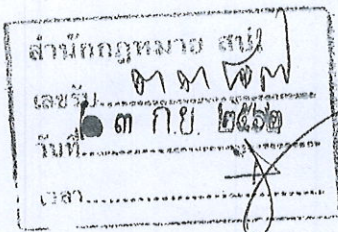 สำนักกฎหมาย สป.
เลขรับ
วันที่ ๓ ก.ย. ๒๕๖๒
เวลา